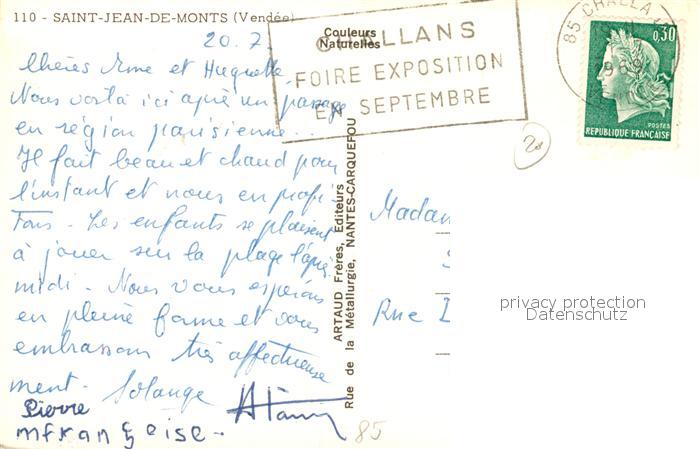 110 - SAINT-JEAN-DE-MONTS (Vendée)
Couleurs
Naturelles
CHALLANS
FOIRE EXPOSITION
EN SEPTEMBRE
85 CHALLA
1969
0,30
POSTES
REPUBLIQUE FRANÇAISE
20.7.
Chères Mme et Huguette,
Nous voilà ici après un passage
en région parisienne...
Il fait beau et chaud pour
l'instant et nous en profi-
tons. Les enfants se plaisent
à jouer sur la plage l'après
midi. Nous vous espérons
en pleine forme et vous
embrassons très affectueuse
ment. Solange
Pierre
mfrançoise.
ARTAUD Frères, Editeurs
Rue de la Métallurgie, NANTES-CARQUEFOU
Madam
Rue
privacy protection
Datenschutz
85